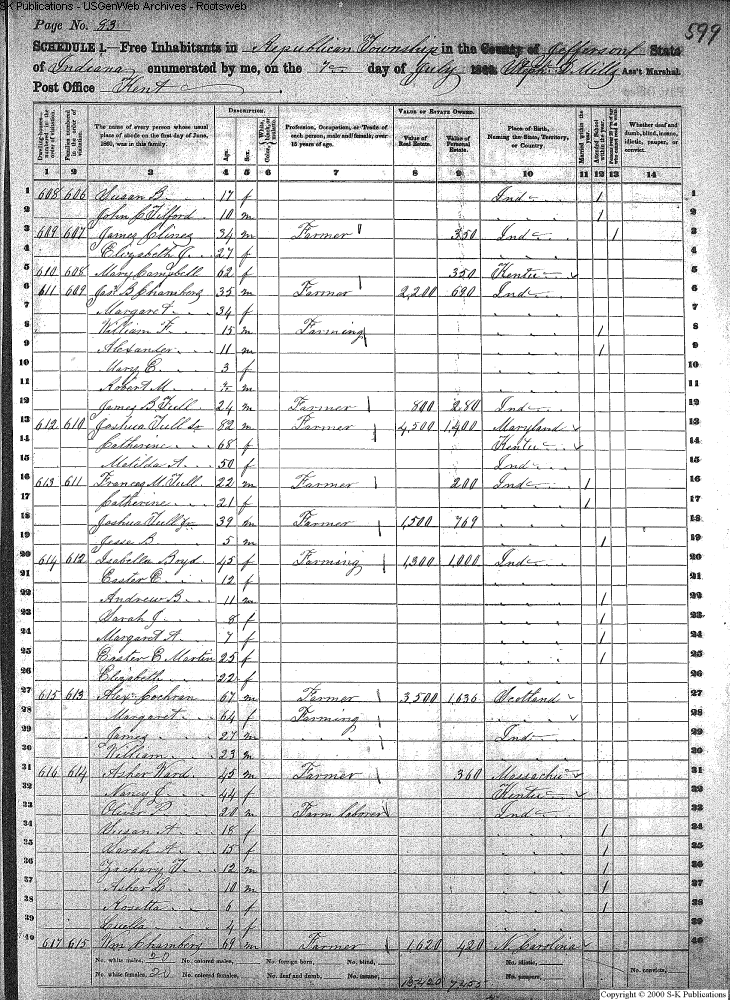 S-K Publications - USGenWeb Archives - Rootsweb
Page No. 93
599
SCHEDULE 1.—Free Inhabitants in Republican Township in the County of Jefferson State
of Indiana enumerated by me, on the 7th day of July 1860. Ass't Marshal.
Post Office Kent
Dwelling-houses— numbered in the order of visitation.
Families numbered in the order of visitation.
The name of every person whose usual place of abode on the first day of June, 1860, was in this family.
DESCRIPTION.
Age.
Sex.
Color, White, black, or mulatto.
Profession, Occupation, or Trade of each person, male and female, over 15 years of age.
VALUE OF ESTATE OWNED.
Value of Real Estate.
Value of Personal Estate.
Place of Birth, Naming the State, Territory, or Country.
Married within the year.
Attended School within the year.
Whether deaf and dumb, blind, insane, idiotic, pauper, or convict.
1 2 3 4 5 6 7 8 9 10 11 12 13 14
1 608 606 Susan B. 17 f Ind 1 1
2 John C Tilford 10 m " 1 2
3 609 607 James Clines 34 m Farmer 350 Ind 1 3
4 Elizabeth J. 27 f " 4
5 610 608 Mary Campbell 62 f 350 Kentu 5
6 611 609 Jas. B Chambers 35 m Farmer 2,200 690 Ind 6
7 Margaret 34 f " 7
8 William F. 15 m Farming " 1 8
9 Alexander 11 m " 1 9
10 Mary E. 3 f " 10
11 Robert M. m " 11
12 James B Tull 24 m Farmer 800 280 Ind 12
13 612 610 Joshua Tull Sr 82 m Farmer 4,500 1,400 Maryland 13
14 Catherine 68 f Kentu 14
15 Matilda A. 50 f Ind 15
16 613 611 Frances M. Tull 22 m Farmer 200 Ind 1 16
17 Catherine 21 f " 1 17
18 Joshua Tull Jr 39 m Farmer 1,500 769 " 18
19 Jesse B 5 m " 1 19
20 614 612 Isabella Boyd 45 f Farming 1,300 1,000 Ind 20
21 Easter E. 12 f " 21
22 Andrew B. 11 m " 1 22
23 Sarah J. 8 f " 1 23
24 Margaret A. 7 f " 1 24
25 Easter E Martin 25 f " 1 25
26 Elizabeth 22 f " 26
27 615 613 Alex Cochran 67 m Farmer 3,500 1,636 Scotland 27
28 Margaret 64 f Farming " 28
29 James 27 m " Ind 29
30 William 23 m " 30
31 616 614 Asher Ward 45 m Farmer 360 Massachu 31
32 Nancy J. 44 f Kentu 32
33 Oliver P. 20 m Farm laborer Ind 33
34 Susan A. 18 f " 1 34
35 Sarah A. 15 f " 1 35
36 Zachary T. 12 m " 1 36
37 Asher D. 10 m " 1 37
38 Rosetta 6 f " 1 38
39 Luella 4 f " 39
40 617 615 Wm Chambers 69 m Farmer 1,620 420 N. Carolina 40
No. white males, 20 No. colored males, No. foreign born, No. blind, No. idiotic,
No. white females, 20 No. colored females, No. deaf and dumb, No. insane, No. paupers, No. convicts,
Copyright © 2000 S-K Publications